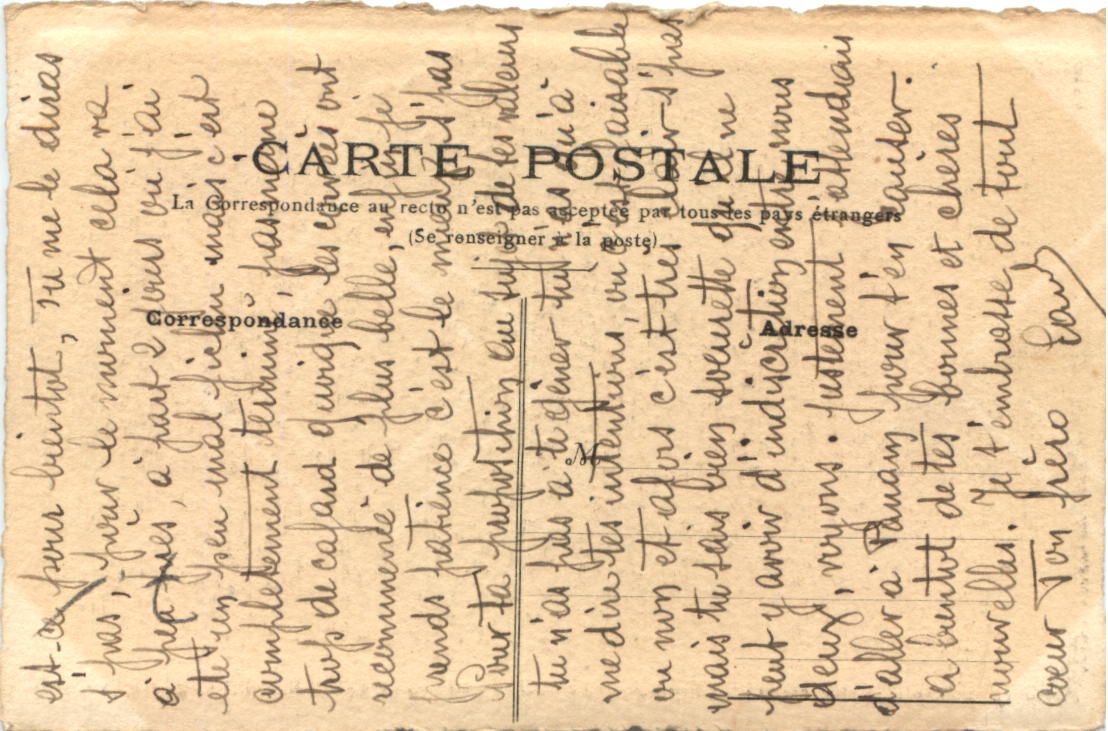 CARTE POSTALE
La Correspondance au recto n'est pas acceptée par tous les pays étrangers
(Se renseigner à la poste)
Correspondance
Adresse
M
est-ce pour bientôt, tu me le diras
n'pas, pour le moment cela va
à peu près, à part 2 jours où j'ai
été un peu mal fichu mais c'est
complètement terminé, pas même
trop de cafard quoique les chaleurs ont
recommencé de plus belle, enfin je
prends patience c'est le mieux n'pas
Pour ta proposition au sujet de tes valeurs
tu n'as pas à te gêner tu n'as qu'à
me dire tes intentions, ou c'est faisable
ou non et alors c'est très clair n'pas
mais tu sais bien soeurette qu'il ne
peut y avoir d'indiscrétion entre nous
deux, voyons. Justement j'attendais
d'aller à pour t'en causer.
à bientôt de tes bonnes et chères
nouvelles. Je t'embrasse de tout
coeur Ton frère